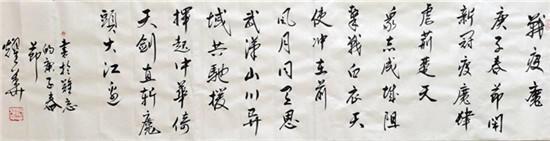 戰疫魔
庚子春節閑
新冠疫魔肆
虐荊楚天
眾志成城阻
擊戰白衣天
使冲在前
风月同天思
武漢山川异
域共馳援
揮起中華倚
天劍直斬魔
頭大江邊
書於難忘
的庚子春
節
耀華